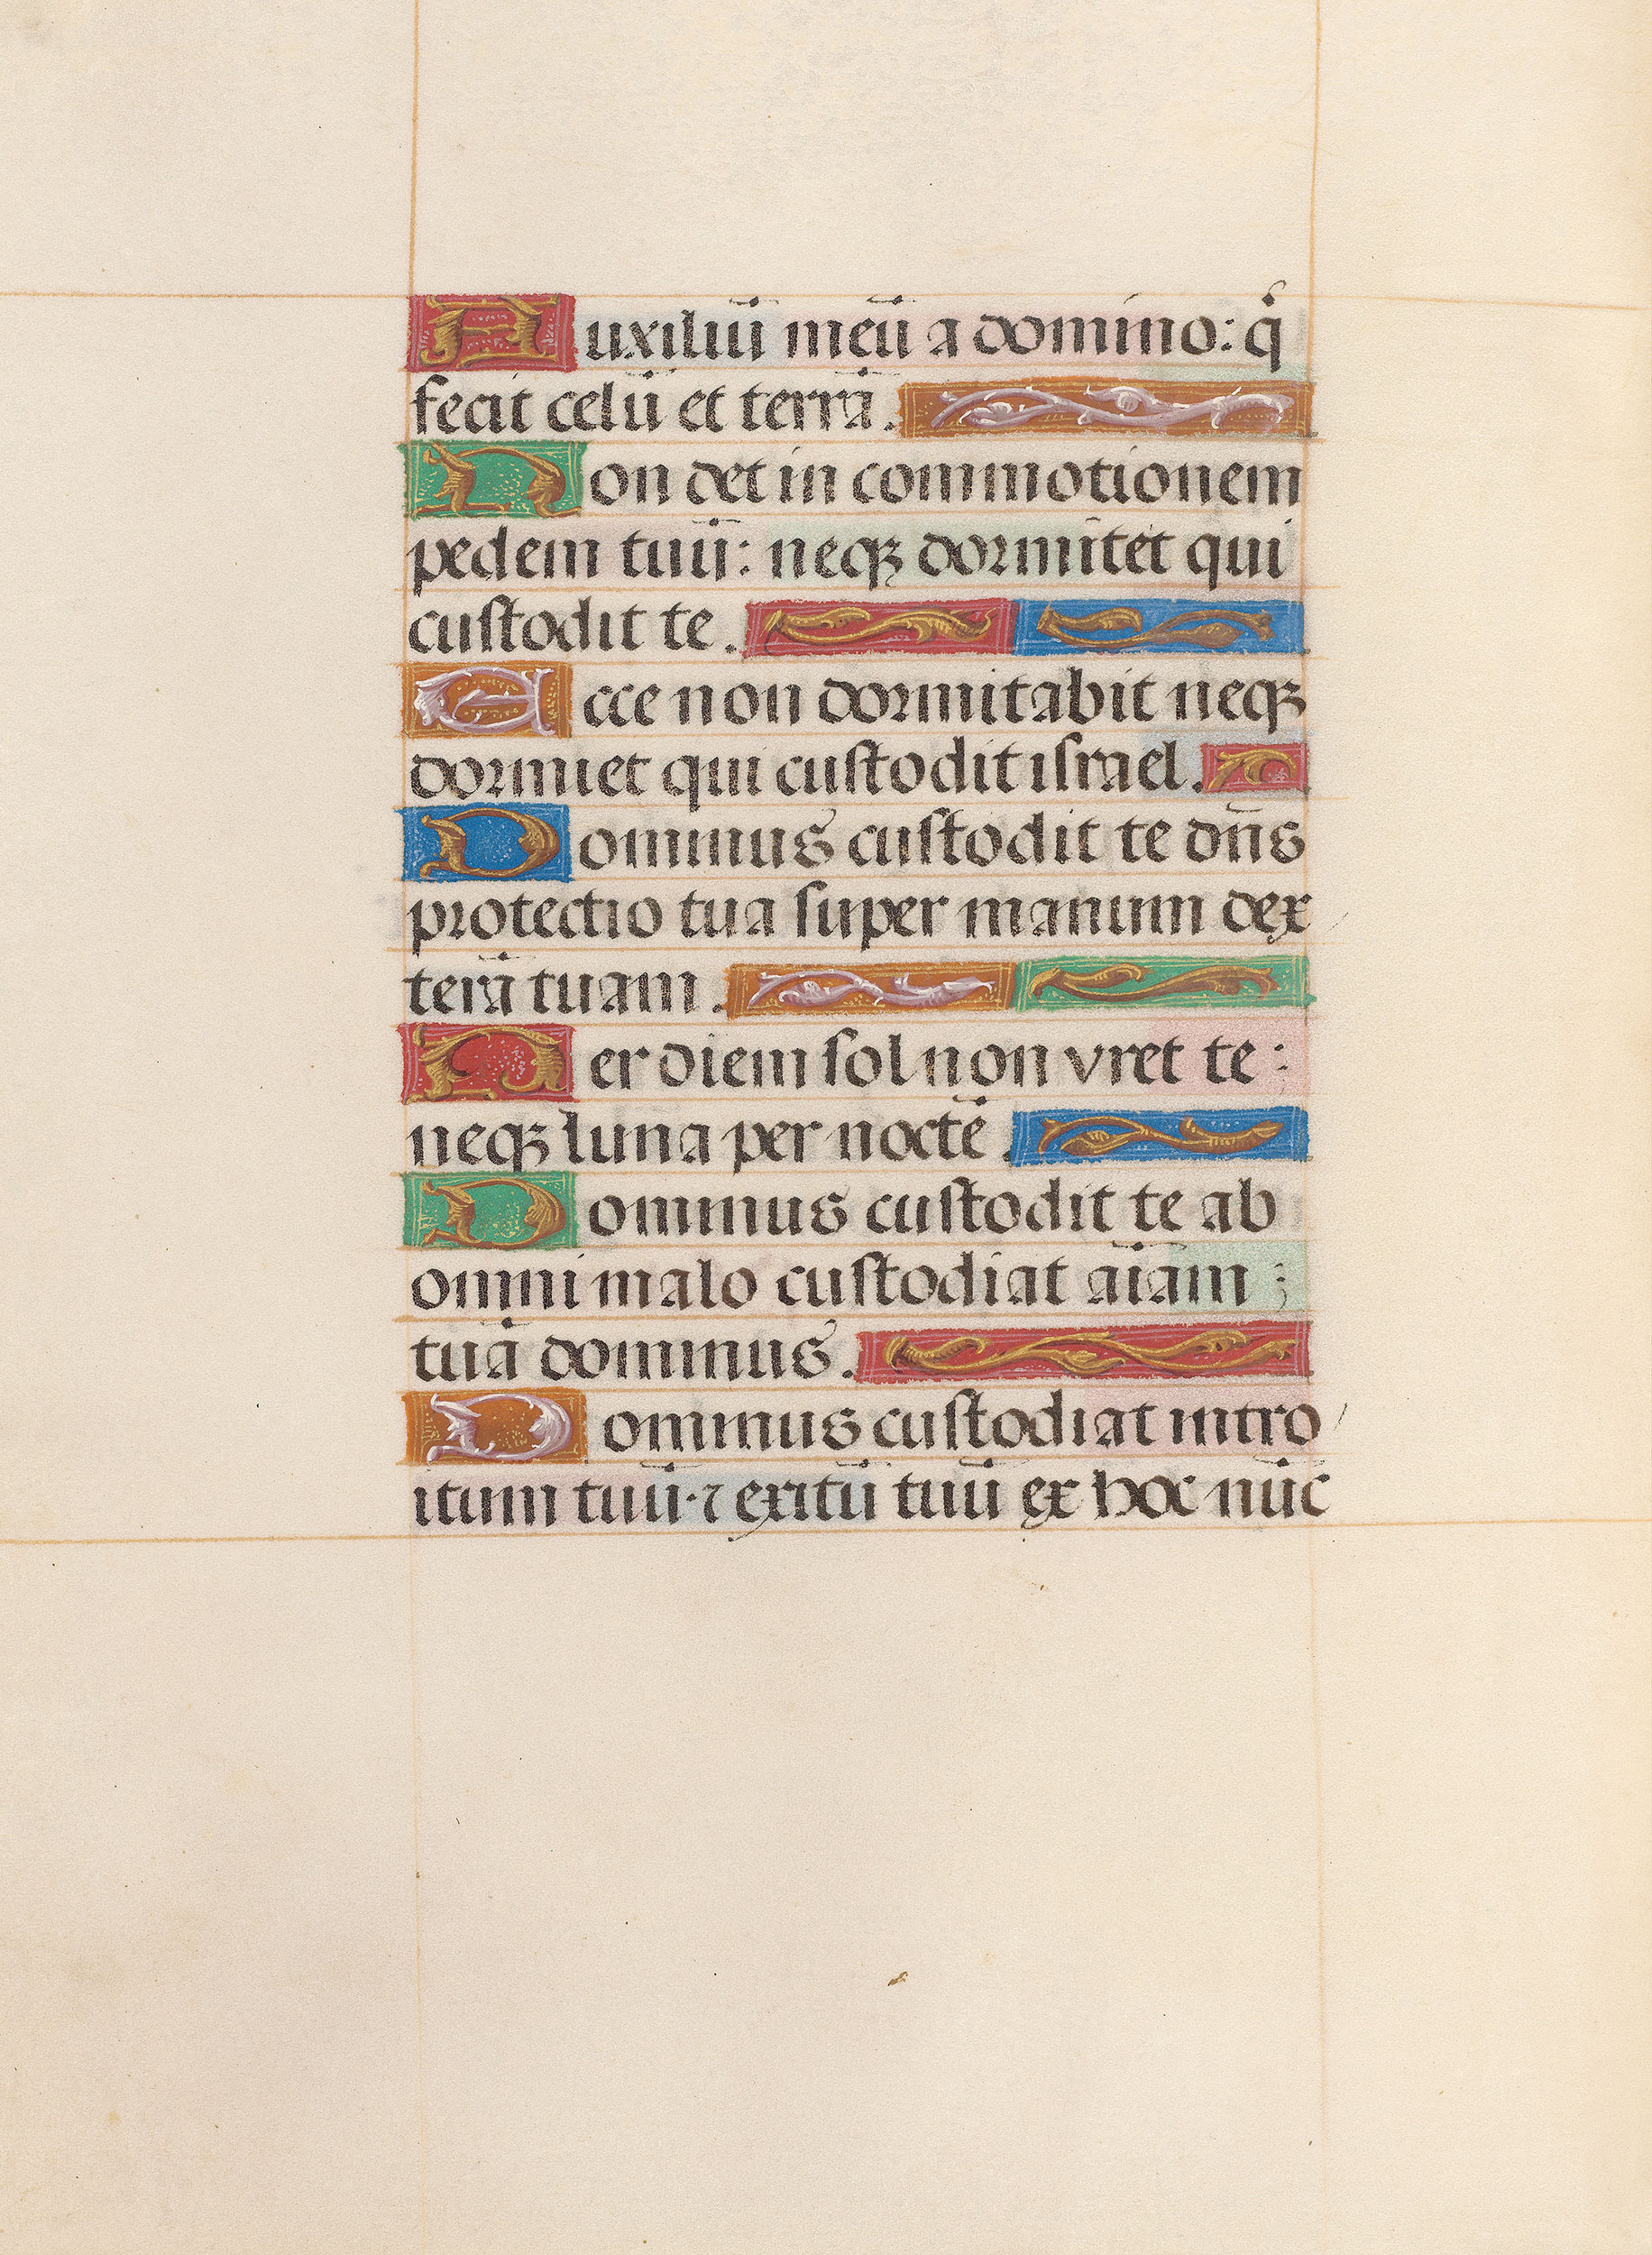 Auxiliū meū a domino: qͥ
fecit celū et terrā.
Non det in commotionem
pedem tuū: neqꝫ dormitet qui
custodit te.
Ecce non dormitabit neqꝫ
dormiet qui custodit israel.
Dominus custodit te dn̄s
protectio tua super manum dex
terā tuam.
Per diem sol non vret te:
neqꝫ luna per noctē.
Dominus custodit te ab
omni malo custodiat aīam:
tuā dominus.
Dominus custodiat intro
itum tuū·⁊ exitū tuū ex hoc nūc